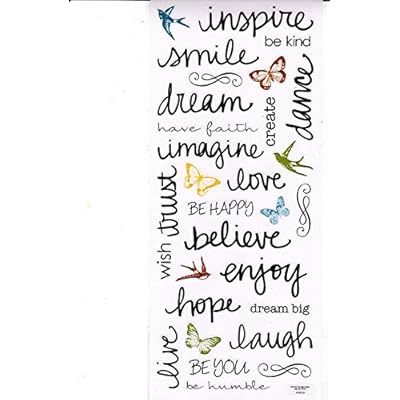 inspire
be kind
smile
dance
dream
create
have faith
imagine
trust
love
BE HAPPY
wish
believe
enjoy
hope
dream big
live
laugh
BE YOU
be humble